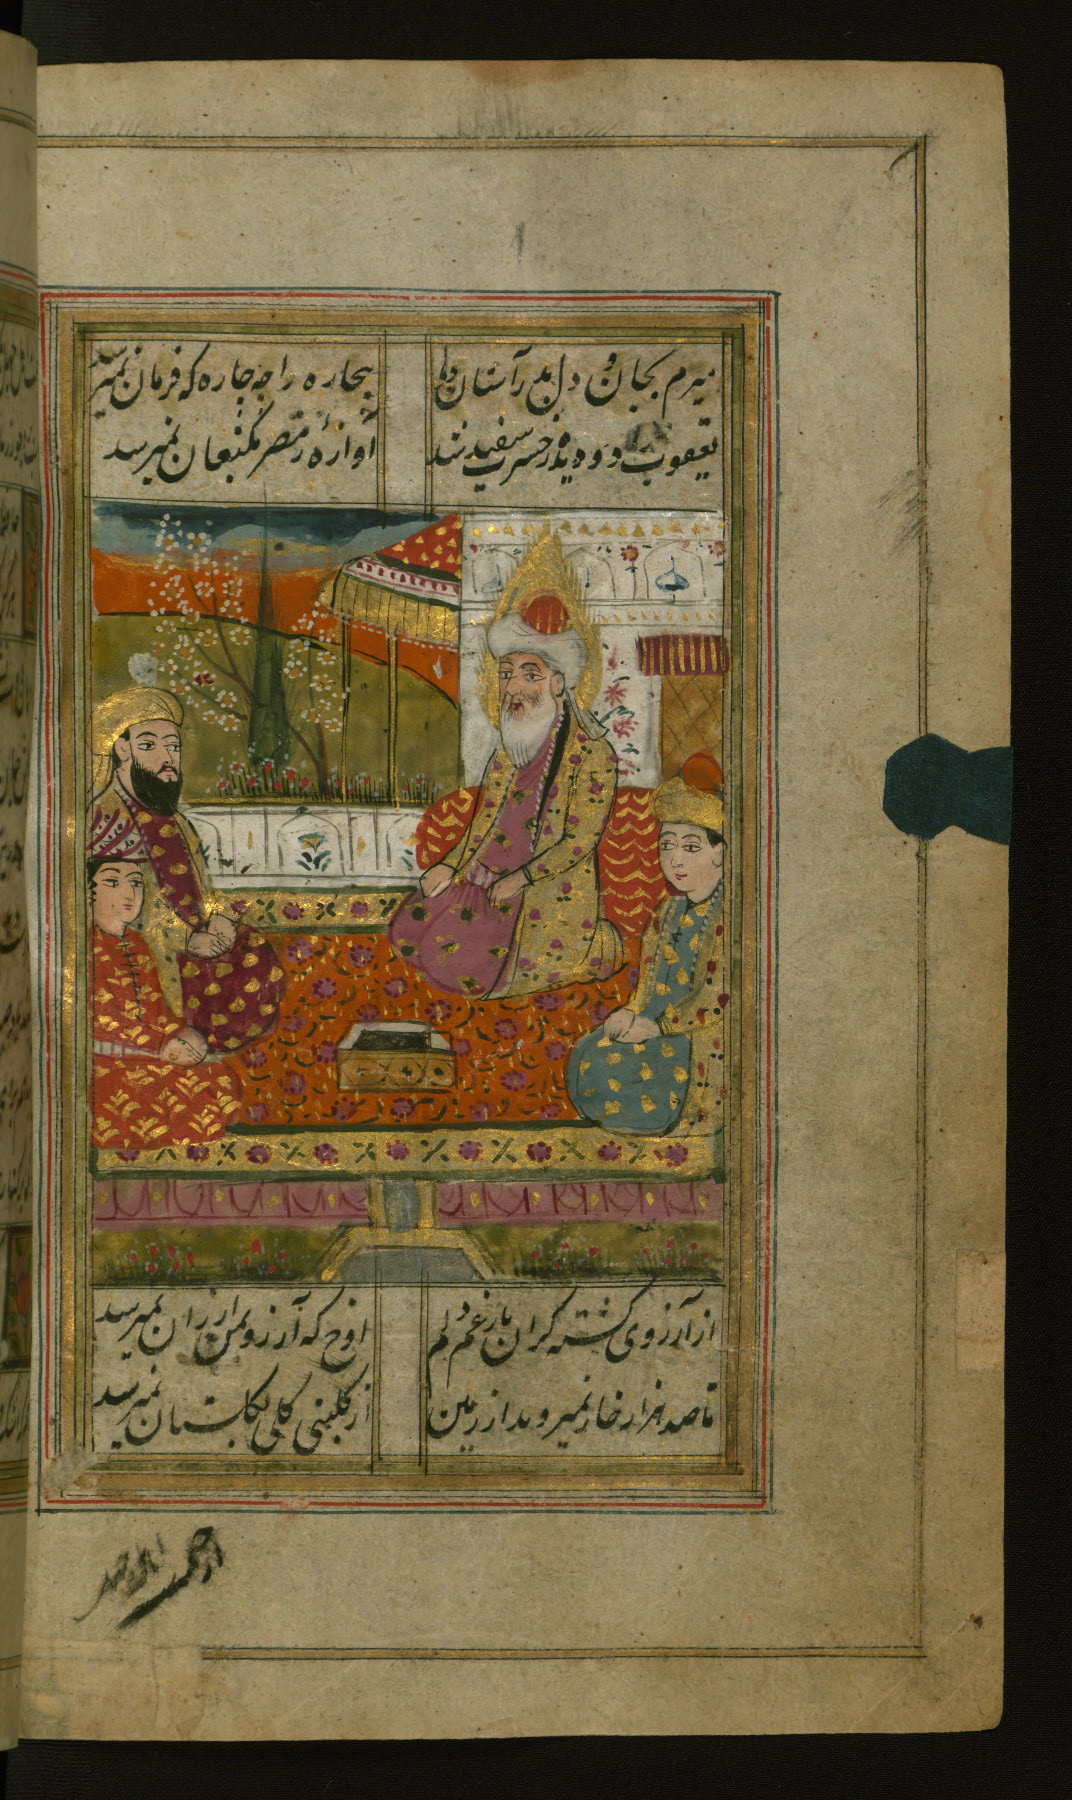 میرم بجان و دل بدر آستان ولی بیچاره را چه چاره که فرمان نمیرسد
یعقوب دو دیده ز حسرت سفید شد آوازهٔ ز مصر بکنعان نمیرسد
از آرزوی گشته گران بار غم دلم آوخ که آرزو بمن ارزان نمیرسد
تا صد هزار خار نمیروید از زمین از گلبنی گلی بگلستان نمیرسد